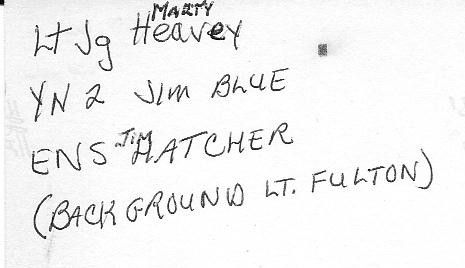 Lt Jg Marty Heavey
YN 2 Jim BLUE
ENS Jim HATCHER
(BACKGROUND LT. FULTON)